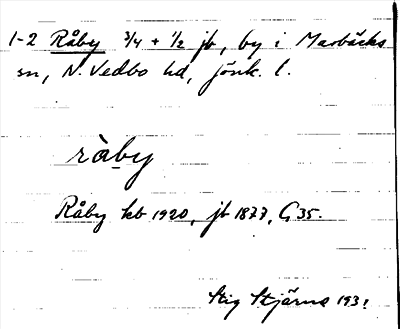 1-2 Råby 3/4 + 1/2 jb, by i Marbäcks
sn, N. Vedbo hd, jönk. l.
ràby
Råby kb 1920, jb 1877, G35.
Stig Stjärne 193